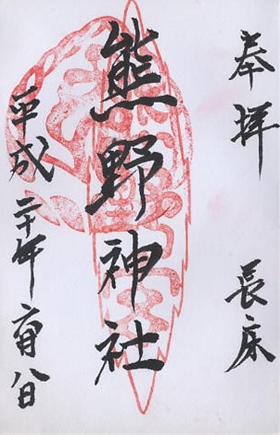 奉拝 長床
熊野神社
平成二十年六月八日